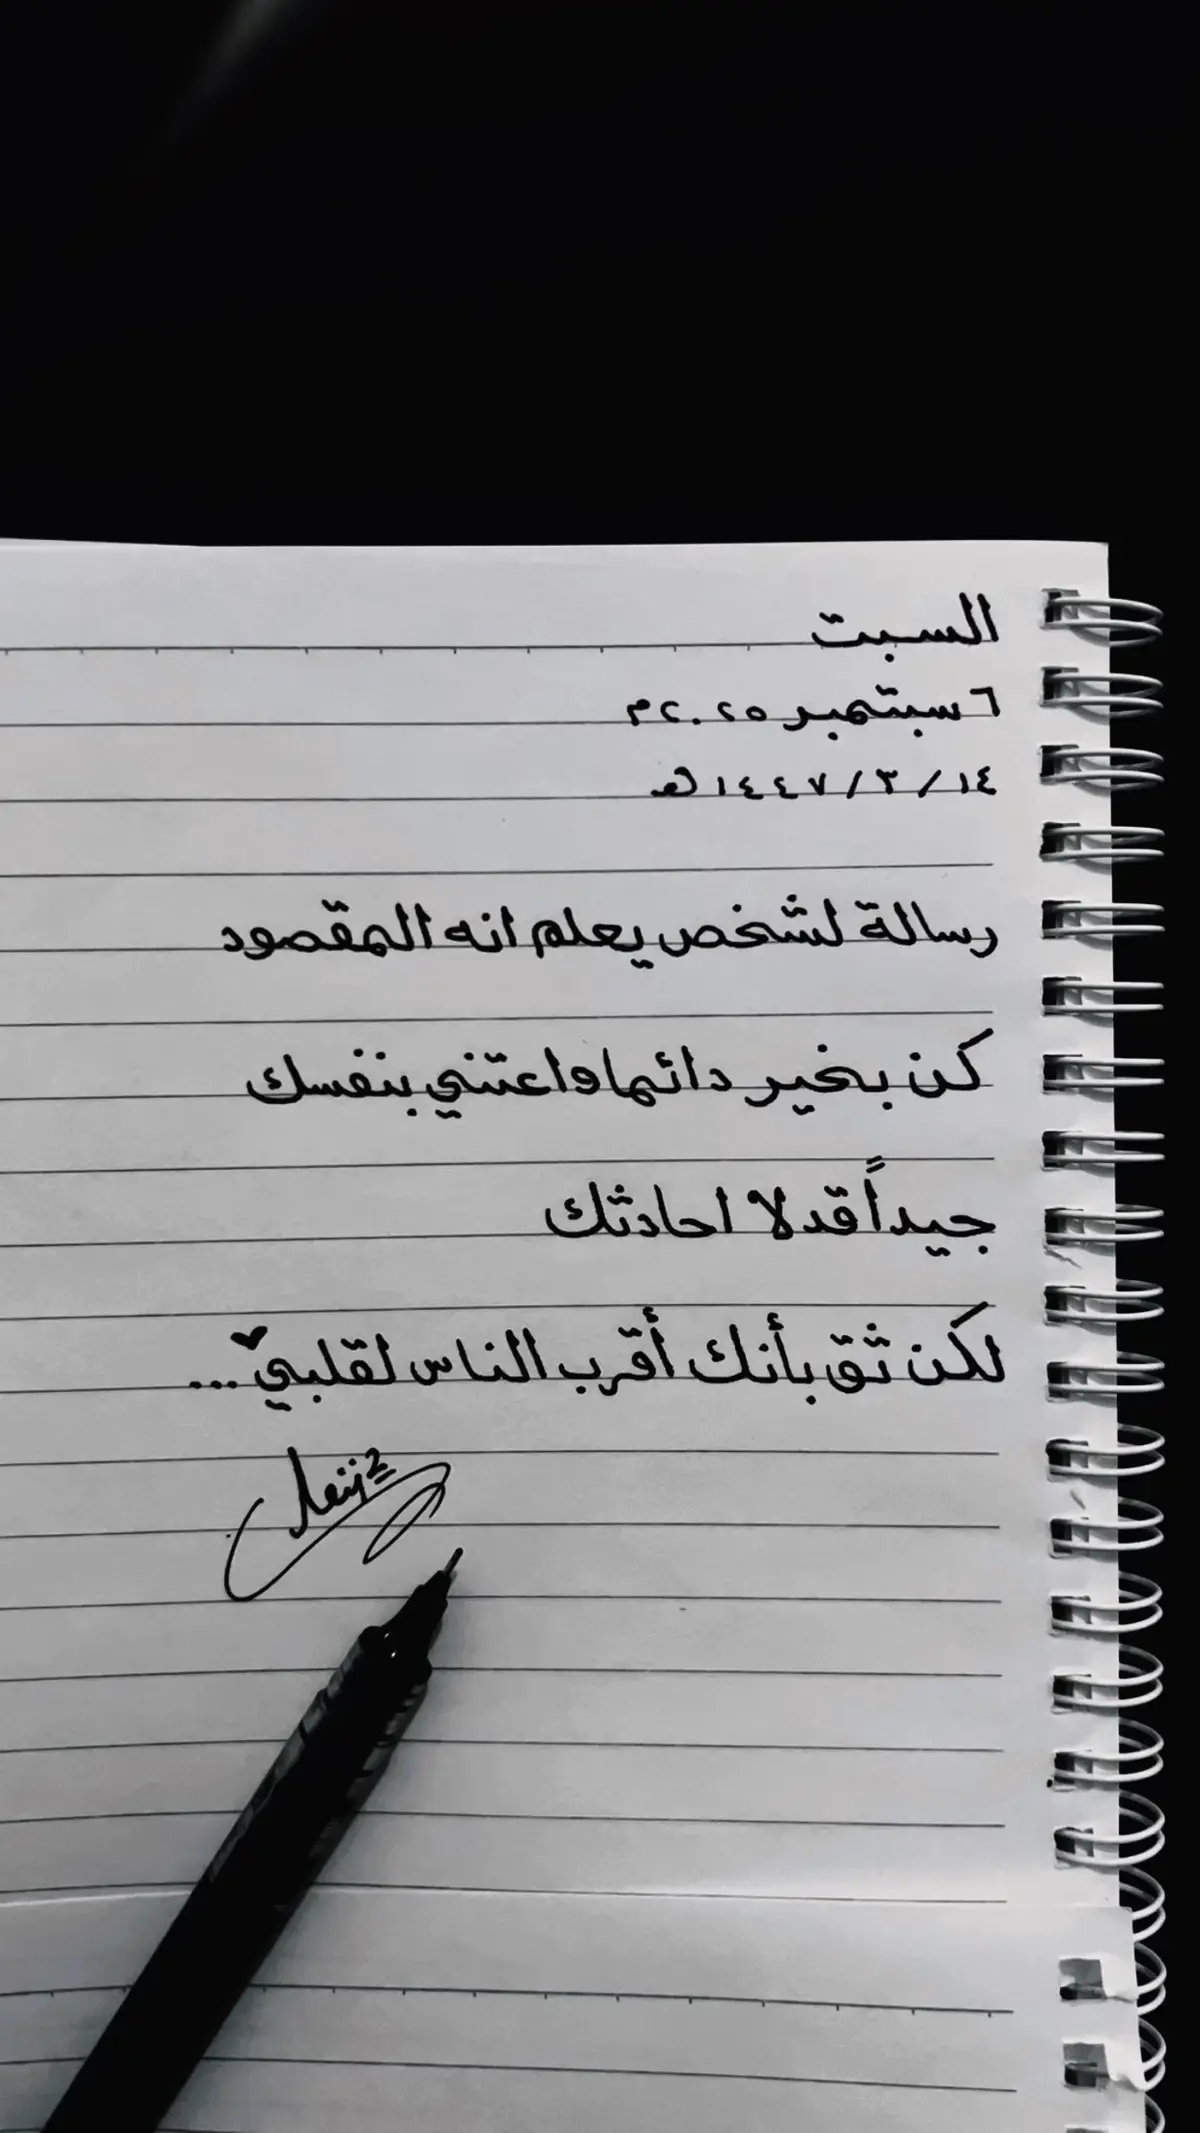 السبت
٦ سبتمبر ٢٠٢٥م
١٤ / ٣ / ١٤٤٧هـ
رسالة لشخص يعلم انه المقصود
كن بخير دائما واعتني بنفسك
جيداً قد لا احادثك
لكن ثق بأنك أقرب الناس لقلبي ...